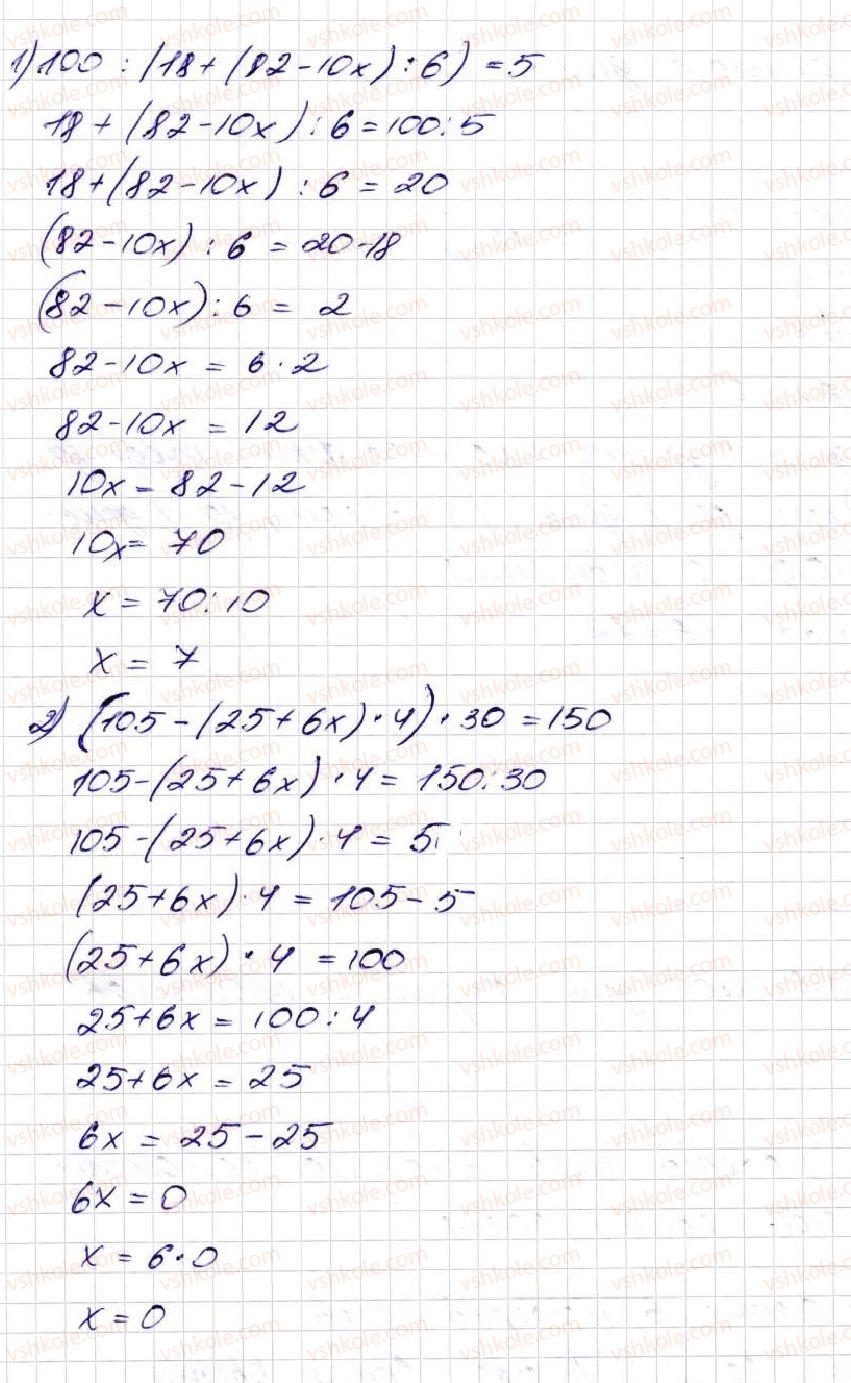 1) 100 : (18 + (82 - 10x) : 6) = 5
18 + (82 - 10x) : 6 = 100 : 5
18 + (82 - 10x) : 6 = 20
(82 - 10x) : 6 = 20 - 18
(82 - 10x) : 6 = 2
82 - 10x = 6 · 2
82 - 10x = 12
10x = 82 - 12
10x = 70
x = 70 : 10
x = 7
2) (105 - (25 + 6x) · 4) · 30 = 150
105 - (25 + 6x) · 4 = 150 : 30
105 - (25 + 6x) · 4 = 5
(25 + 6x) · 4 = 105 - 5
(25 + 6x) · 4 = 100
25 + 6x = 100 : 4
25 + 6x = 25
6x = 25 - 25
6x = 0
x = 6 · 0
x = 0
vshkole.com